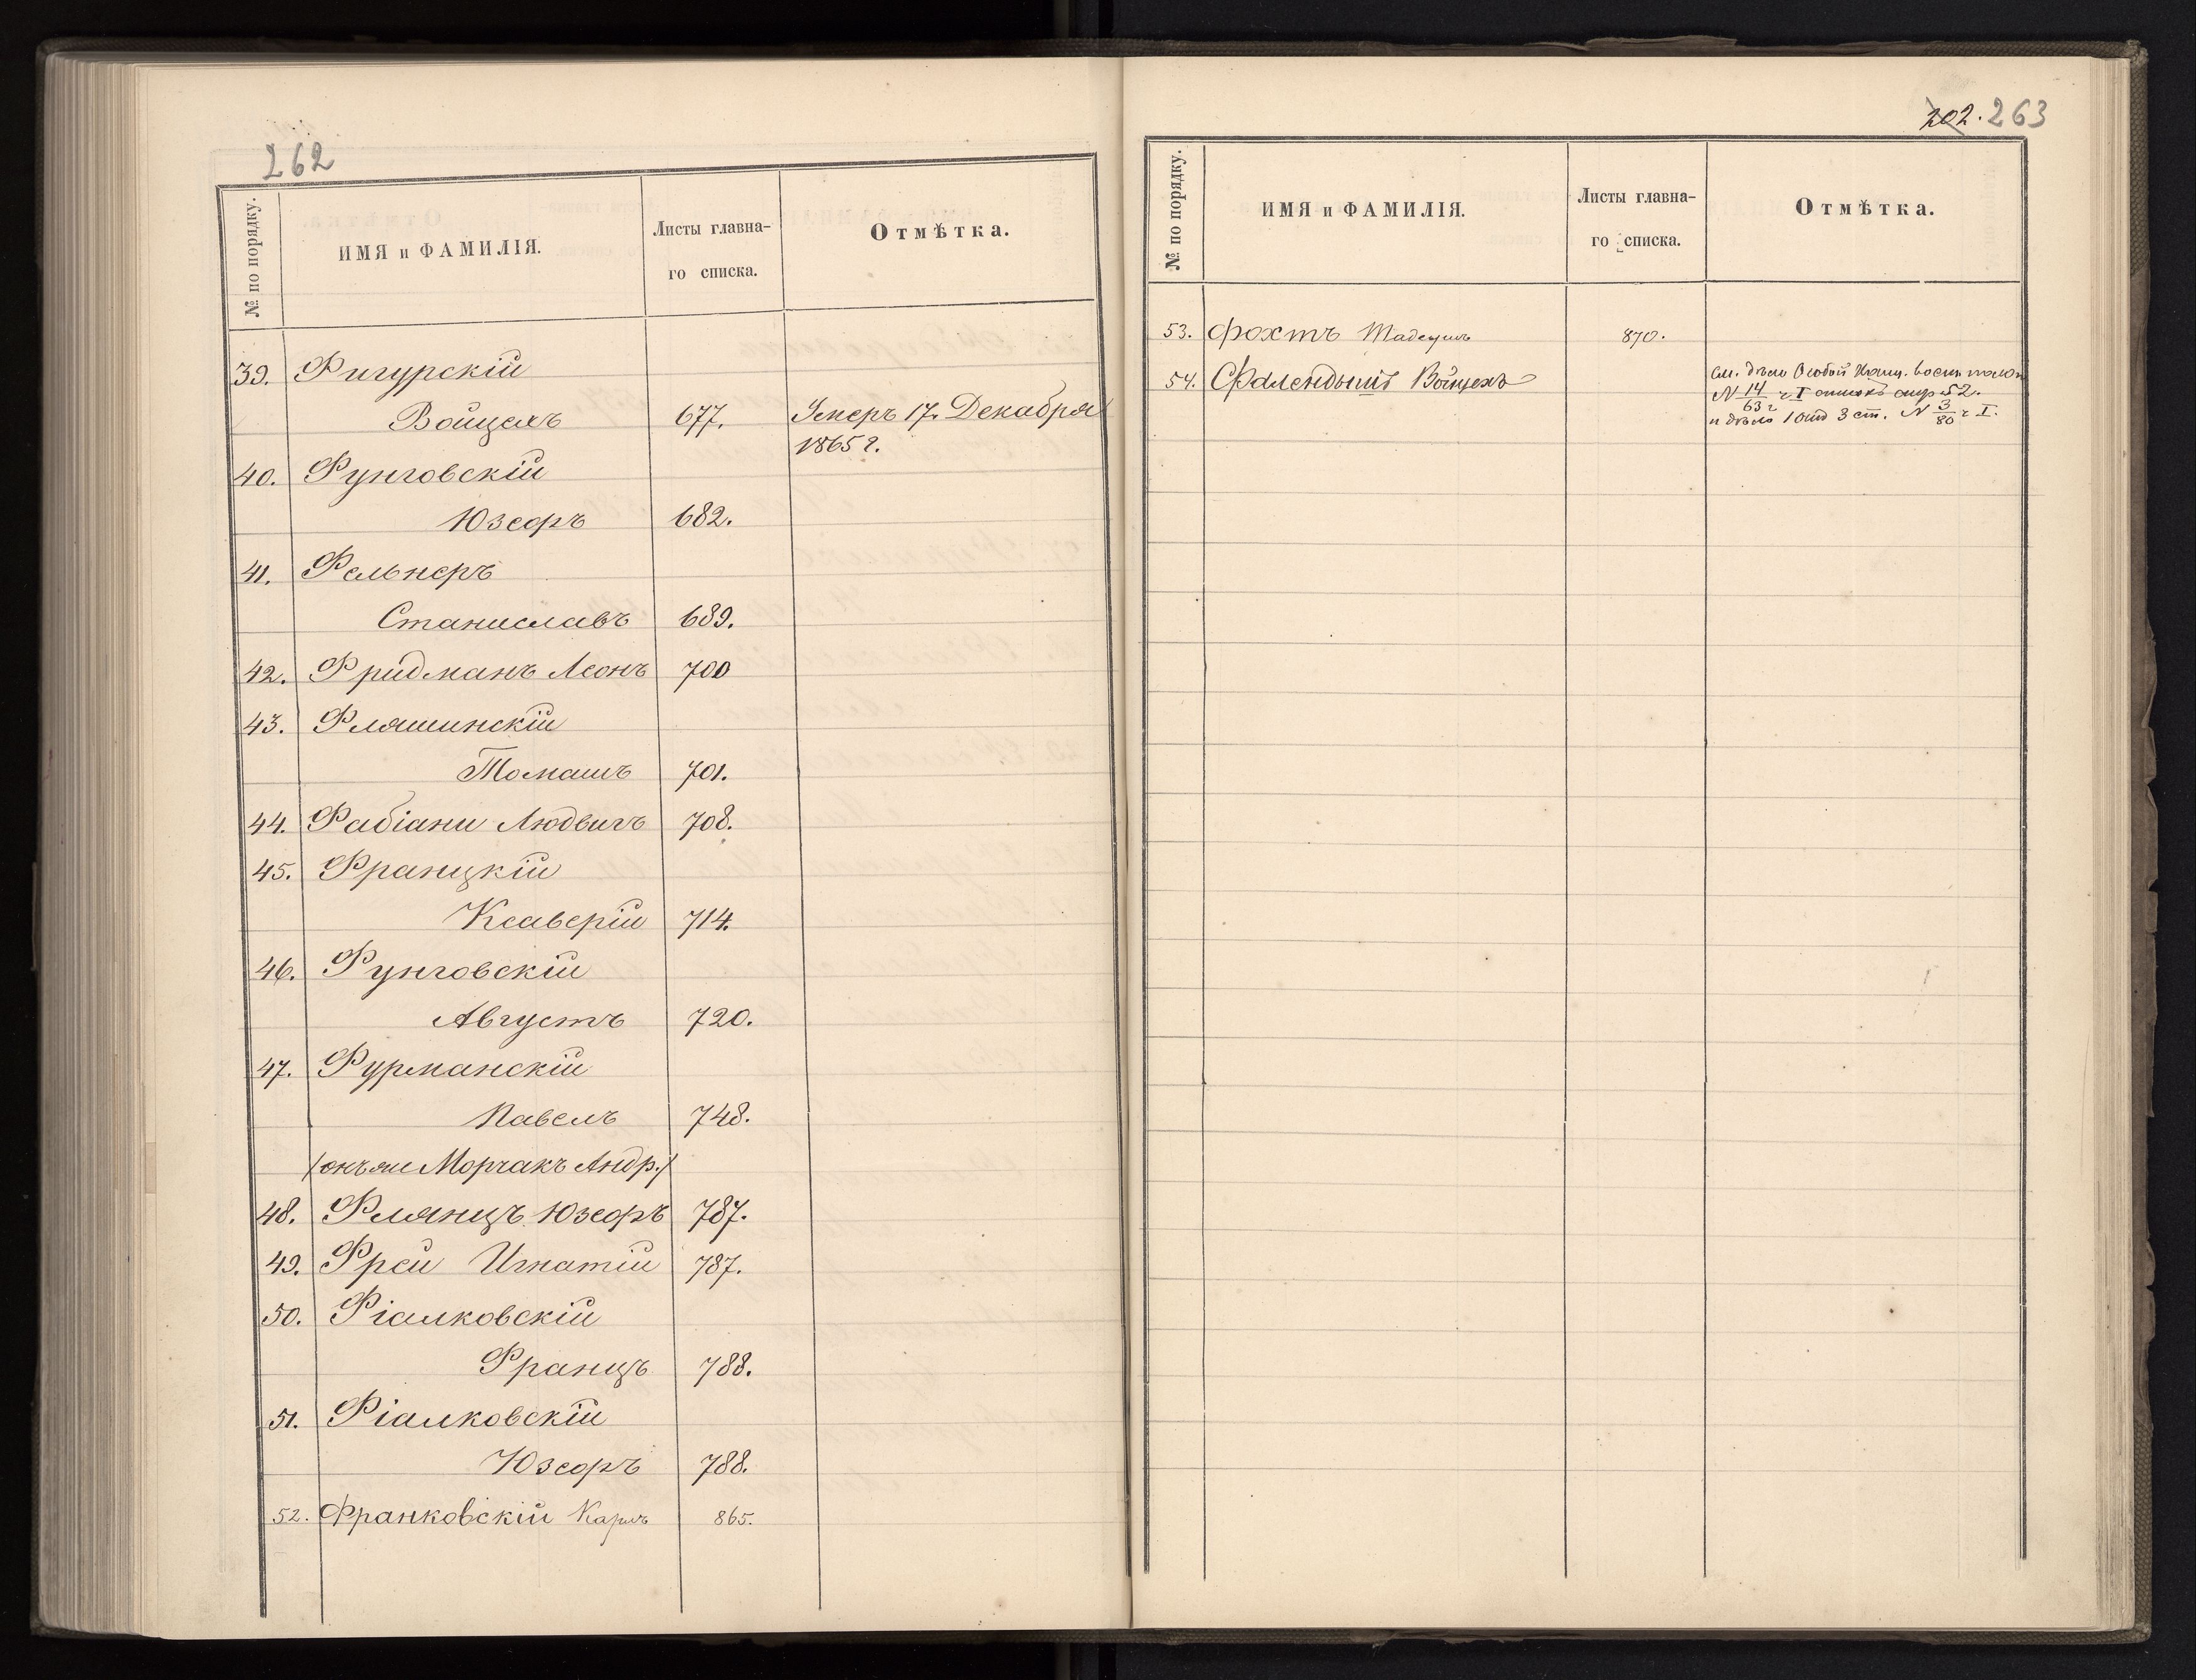 262
№ по порядку.
ИМЯ и ФАМИЛІЯ.
Листы главна-
го списка.
Отмѣтка.
39. Фигурскій
Войцехъ 677. Умеръ 17. Декабря
1865 г.
40. Фунговскій
Юзефъ 682.
41. Фельнеръ
Станиславъ 689.
42. Фридманъ Леонъ 700
43. Фляшинскій
Томашъ 701.
44. Фабіани Людвигъ 708.
45. Францкій
Ксаверій 714.
46. Фунговскій
Августъ 720.
47. Фурманскій
Павелъ 748.
/онъ же Морчакъ Андр./
48. Флянцъ Юзефъ 787.
49. Фрей Игнатій 787.
50. Фіалковскій
Францъ 788.
51. Фіалковскій
Юзефъ 788.
52. Франковскій Карлъ 865.
202. 263
№ по порядку.
ИМЯ и ФАМИЛІЯ.
Листы главна-
го списка.
Отмѣтка.
53. Фохтъ Тадеушъ 870.
54. Фалендышъ Войцехъ см. дѣло Особой Канц. военн
N 14/63 г. ч I стр 52.
и дѣло 1 отд 3 ст. N 3/80 ч I.